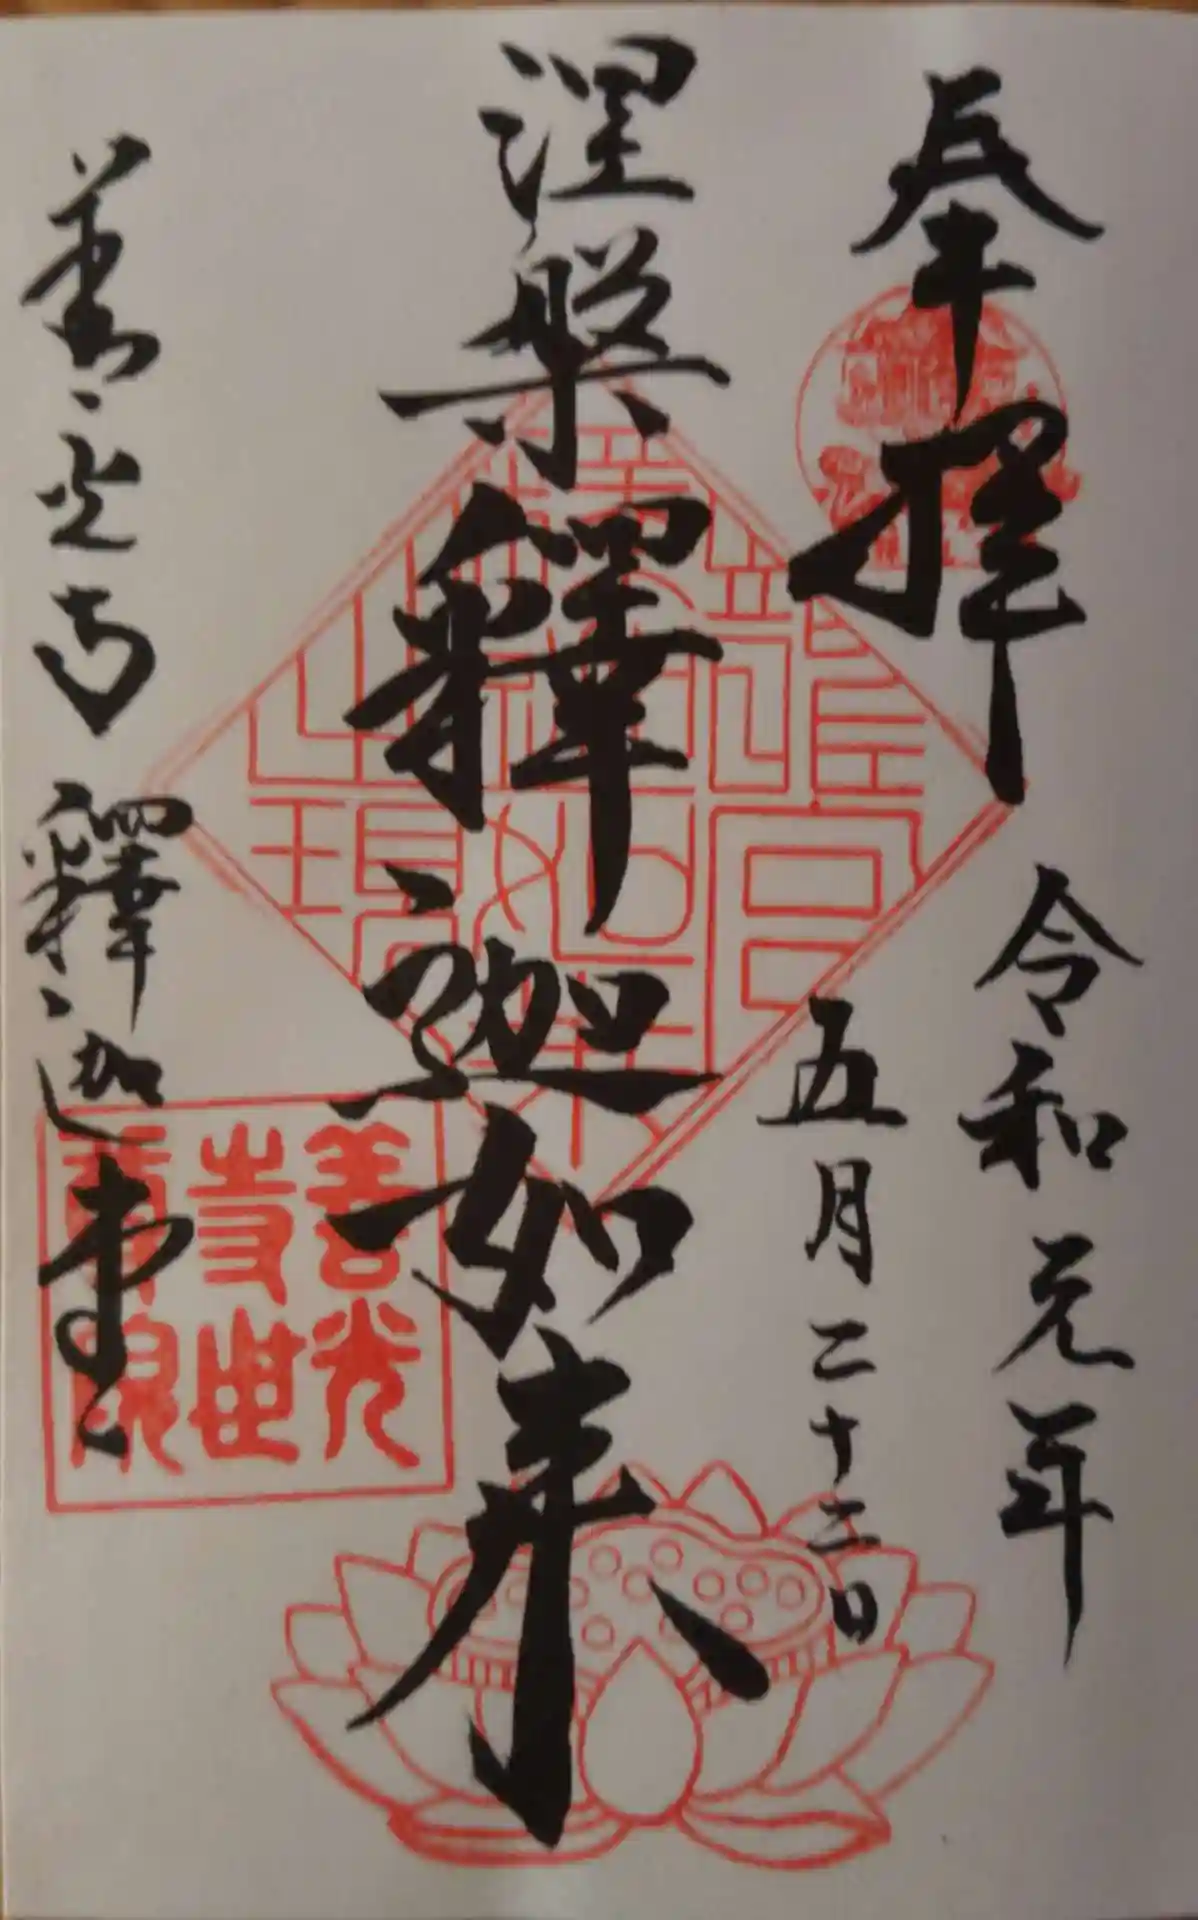 奉拝
令和元年
五月二十二日
涅槃釋迦如来
善光寺釋迦堂
善光
寺世
尊院